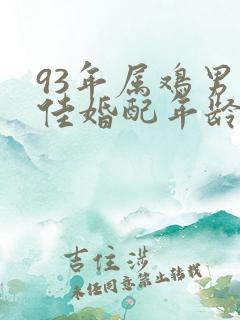 93年属鸡男
佳婚配年龄
吉住涉
未经同意禁止转载